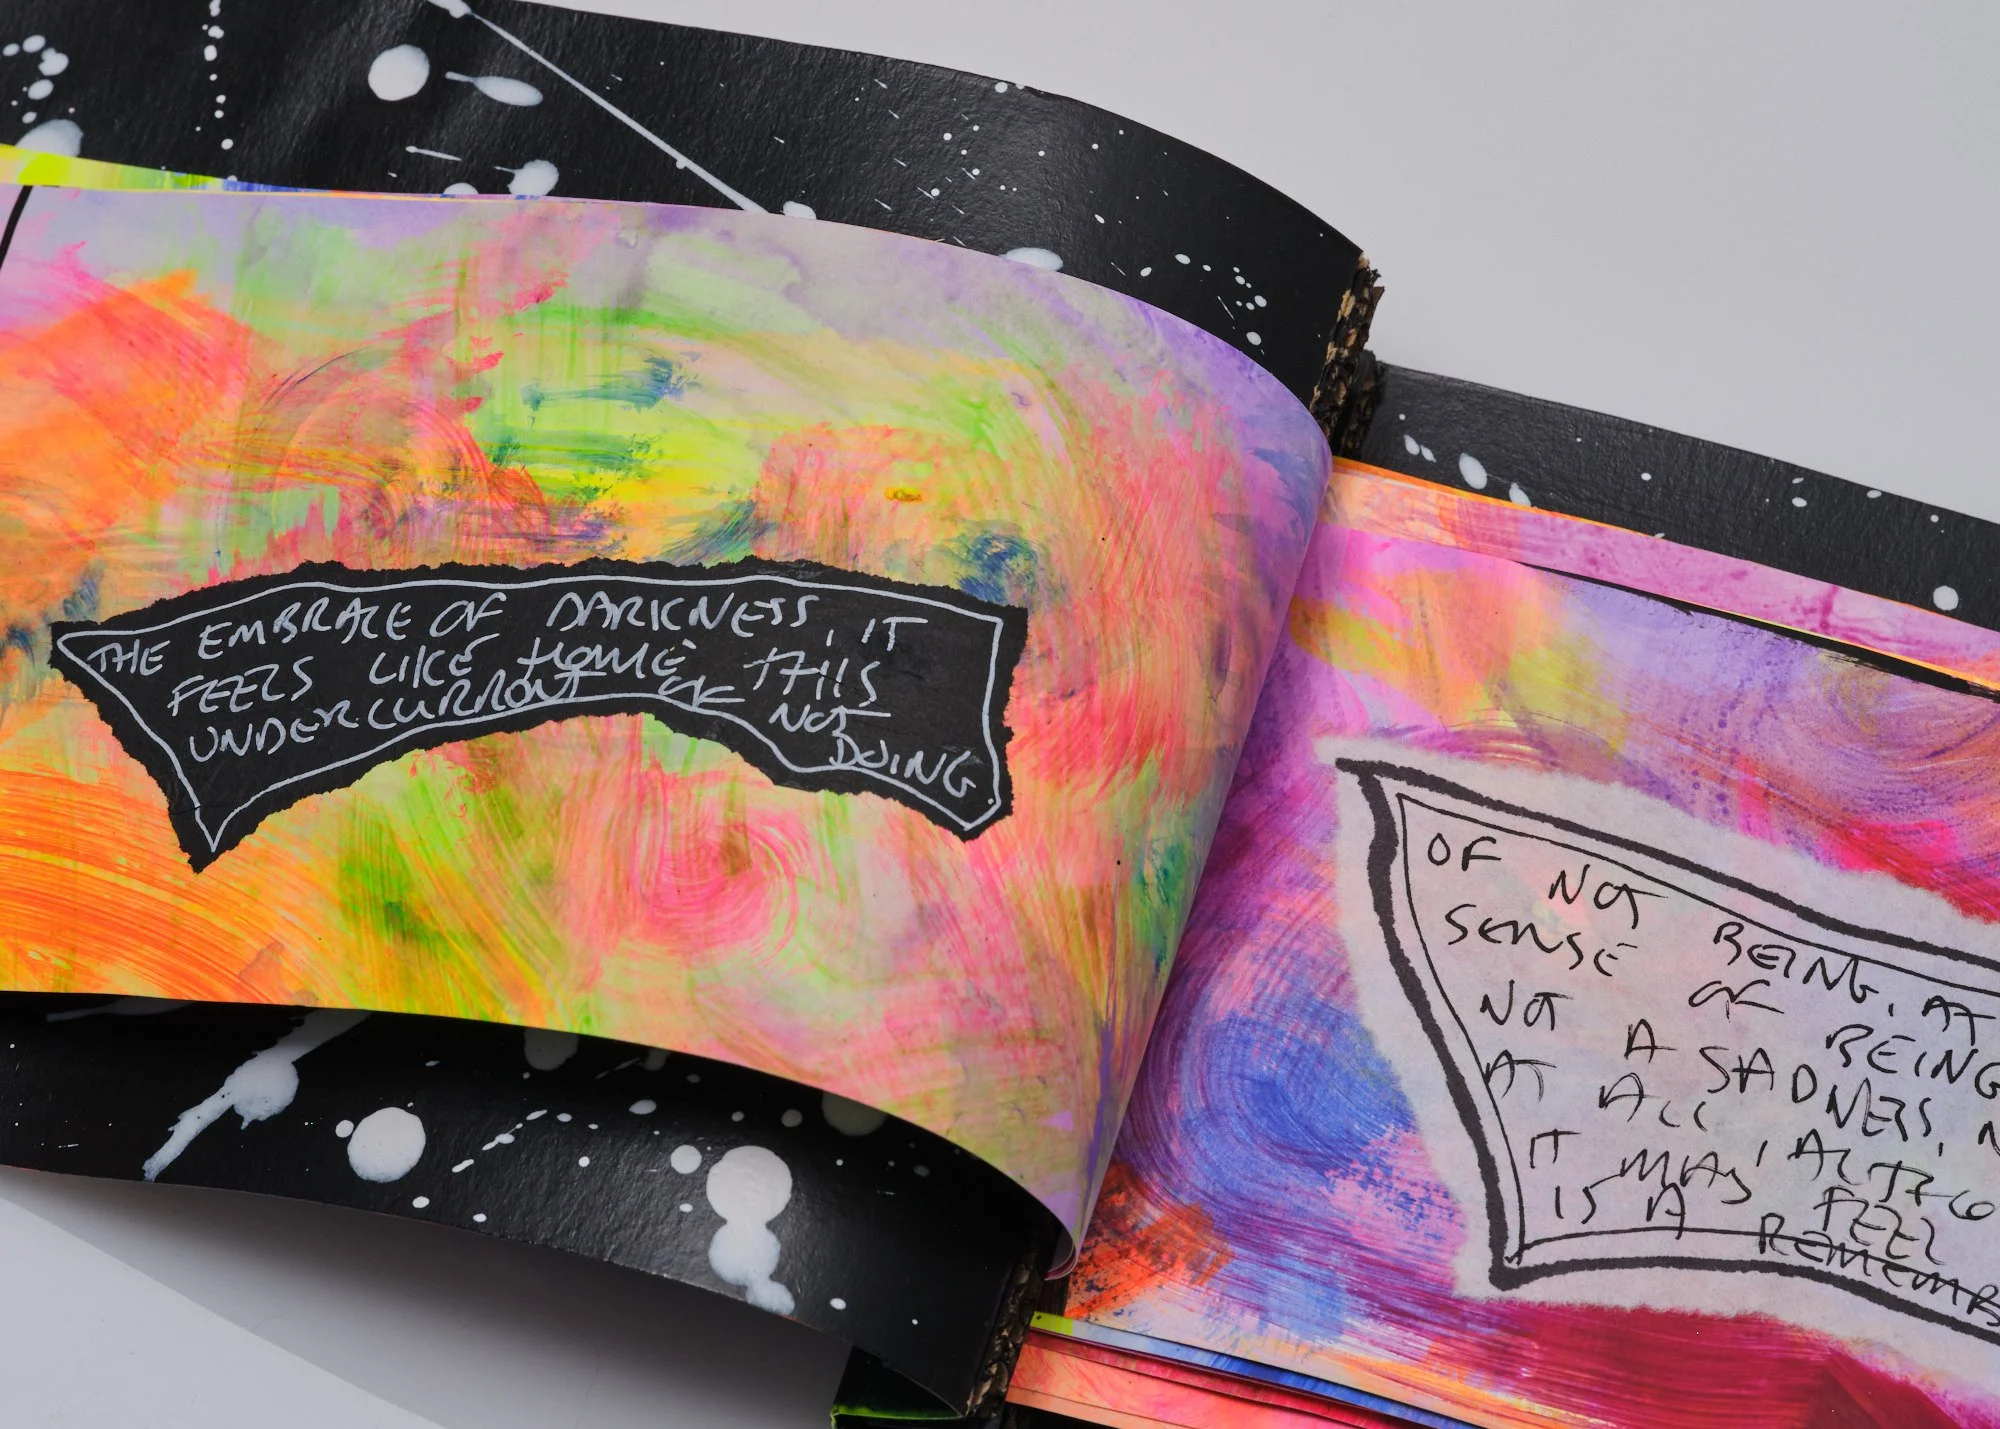 THE EMBRACE OF DARKNESS, IT
FEELS LIKE HOME THIS
UNDERCURRONT OF NOT
DOING
OF NOT BEING, AT
SENSE OF BEING
NOT A SADNESS, N
AT ALL, ALTHO
IT MAY FEEL
IS A REMEMB